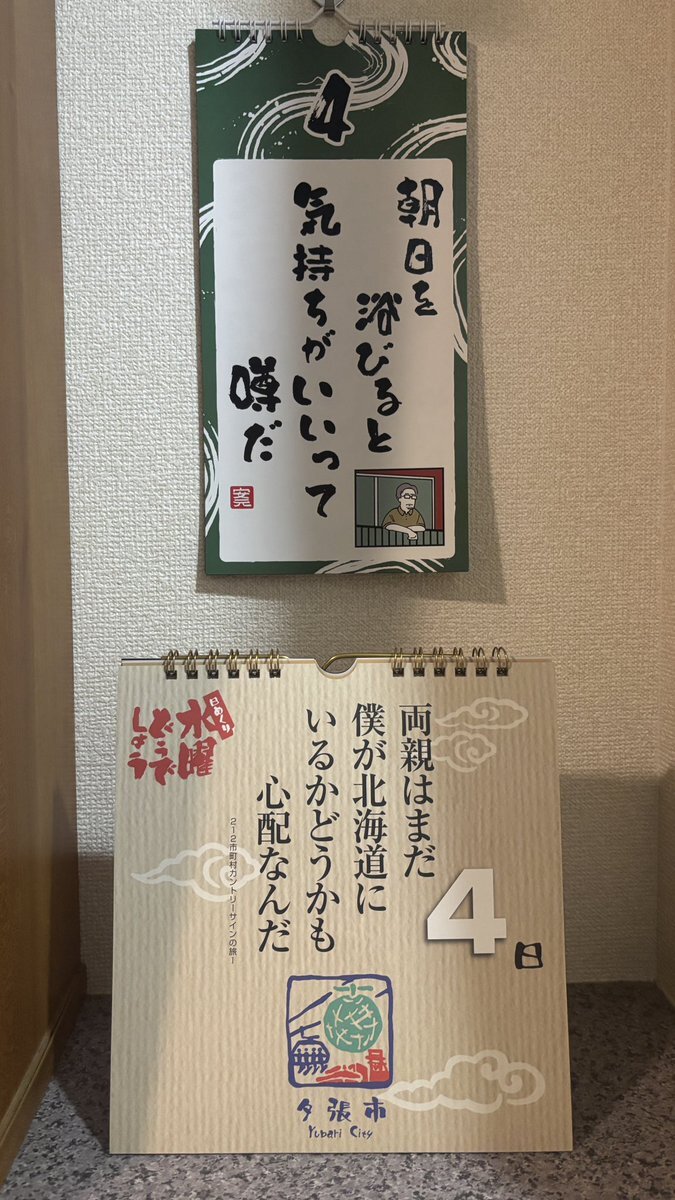 4
朝日を
浴びると
気持ちがいいって
噂だ
日めくり
水曜
どうで
しょう
両親はまだ
僕が北海道に
いるかどうかも
心配なんだ
212市町村カントリーサインの旅1
4日
夕張市
Yubari City